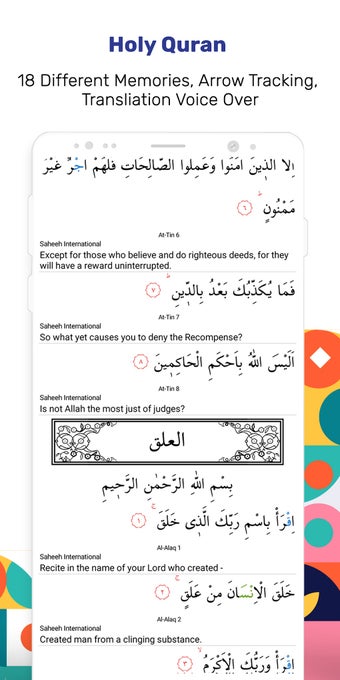 Holy Quran
18 Different Memories, Arrow Tracking,
Transliation Voice Over
اِلَّا الَّذٖينَ اٰمَنُوا وَعَمِلُوا الصَّالِحَاتِ فَلَهُمْ اَجْرٌ غَيْرُ
مَمْنُونٍ ٦
At-Tin 6
Saheeh International
Except for those who believe and do righteous deeds, for they
will have a reward uninterrupted.
فَمَا يُكَذِّبُكَ بَعْدُ بِالدّٖينِ ٧
At-Tin 7
Saheeh International
So what yet causes you to deny the Recompense?
اَلَيْسَ اللّٰهُ بِاَحْكَمِ الْحَاكِمٖينَ ٨
At-Tin 8
Saheeh International
Is not Allah the most just of judges?
العلق
بِسْمِ اللّٰهِ الرَّحْمٰنِ الرَّحٖيمِ
اِقْرَأْ بِاسْمِ رَبِّكَ الَّذٖى خَلَقَ ١
Al-Alaq 1
Saheeh International
Recite in the name of your Lord who created -
خَلَقَ الْاِنْسَانَ مِنْ عَلَقٍ ٢
Al-Alaq 2
Saheeh International
Created man from a clinging substance.
اِقْرَأْ وَرَبُّكَ الْاَكْرَمُ ٣